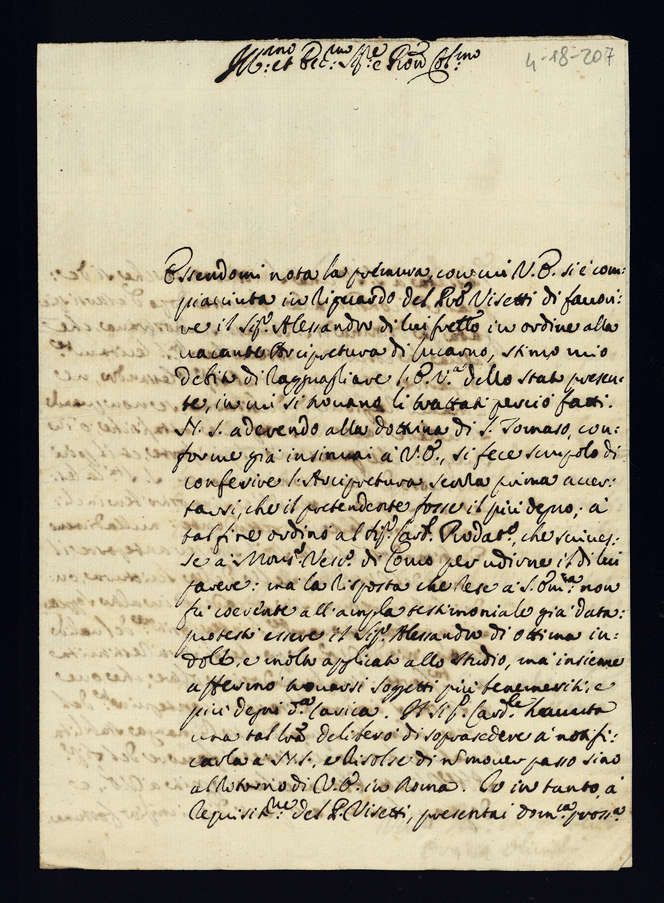 Ill:mo et Ecc:mo Sig:re e Pron Col:mo
4-18-207
Essendomi nota la premura, con cui V. E. si è com:
piacciuta in riguardo del P.re Visetti di favori:
re il Sig.r Alessandro di lui frello in ordine alla
vacante Arcipretura di Lucarno, stimo mio
debito di ragguagliare l'E. V.a dello stato presen:
te, in cui si trovano li trattati perciò fatti.
N. S. aderendo alla dottrina di S. Tomaso, con:
forme già insinuai à V. E., si fece scrupolo di
conferire l'Arcipretura senza prima accer:
tarsi, che il pretendente fosse il più degno; à
tal fine ordinò al Sig.r Card. Prodat.o, che scrives:
se à Mons.r Vesc.o di Como per udirne il di lui
parere: mà la risposta che rese à S. Em.za non
fù coerente all'ampla testimoniale già data:
protestò essere il Sig.r Alessandro di ottima in:
dole, e molto applicato allo studio, mà insieme
affermò trovarsi soggetti più benemeriti, e
più degni d.a Carica. Il Sig.r Card.le havuta
una tal lra deliberò di soprasedere à notifi:
carla à N. S., e risolse di n mover passo sino
al ritorno di V. E. in Roma. Io in tanto, à
requisit.ne del P. Visetti, presentai dom.ca pross.a